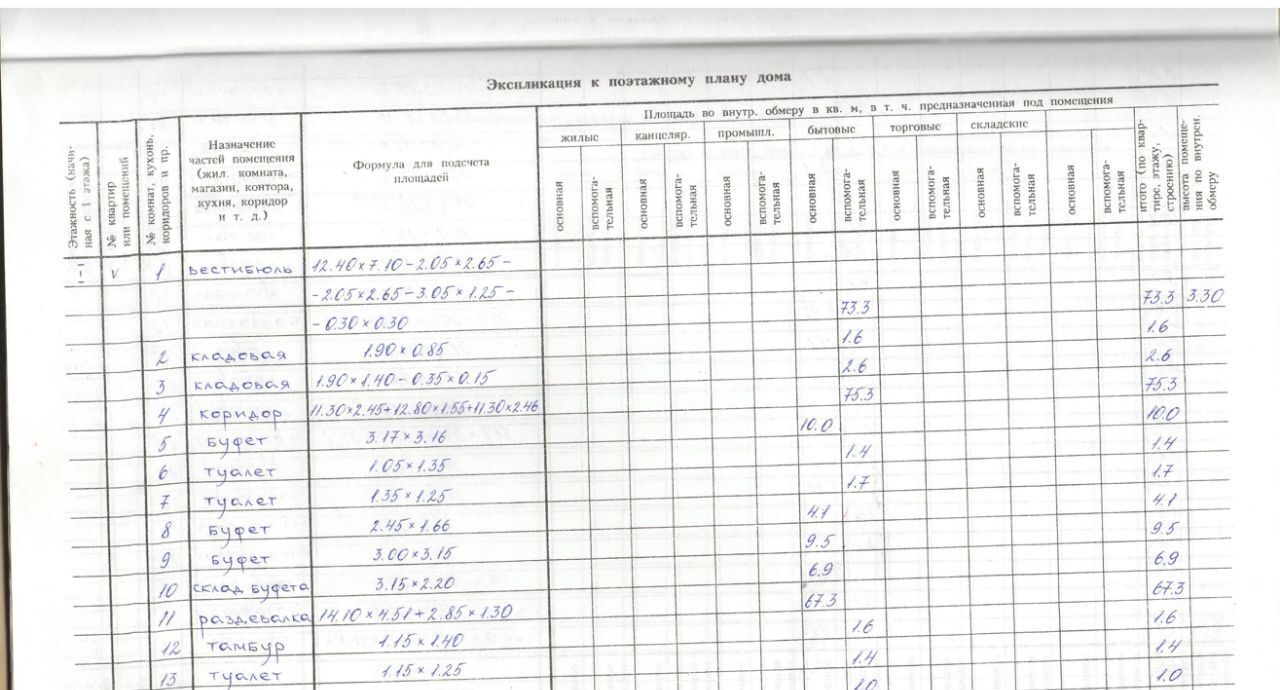 Экспликация к поэтажному плану дома
Этажность (начиная с 1 этажа)
№ квартир или помещений
№ комнат, кухонь, коридоров и пр.
Назначение частей помещения (жил. комната, магазин, контора, кухня, коридор и т. д.)
Формула для подсчета площадей
Площадь по внутр. обмеру в кв. м, в т. ч. предназначенная под помещения
жилые канцеляр. промышл. бытовые торговые складские
основная вспомогательная основная вспомогательная основная вспомогательная основная вспомогательная основная вспомогательная основная вспомогательная основная вспомогательная
итого (по квартире, этажу, строению)
высота помещения по внутрен. обмеру
I V 1 вестибюль 12.40×7.10-2.05×2.65-
-2.05×2.65-3.05×1.25-
-0.30×0.30 73.3 73.3 3.30
2 кладовая 1.90×0.85 1.6 1.6
3 кладовая 1.90×1.40-0.35×0.15 2.6 2.6
4 коридор 11.30×2.45+12.80×1.55+11.30×2.46 75.3 75.3
5 буфет 3.17×3.16 10.0 10.0
6 туалет 1.05×1.35 1.4 1.4
7 туалет 1.35×1.25 1.7 1.7
8 буфет 2.45×1.66 4.1 4.1
9 буфет 3.00×3.15 9.5 9.5
10 склад буфета 3.15×2.20 6.9 6.9
11 раздевалка 14.10×4.51+2.85×1.30 67.3 67.3
12 тамбур 1.15×1.40 1.6 1.6
13 туалет 1.15×1.25 1.4 1.4
1.0 1.0